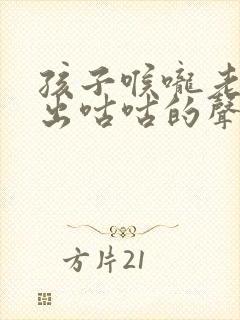 孩子喉嚨老
出咕咕的聲
方片21